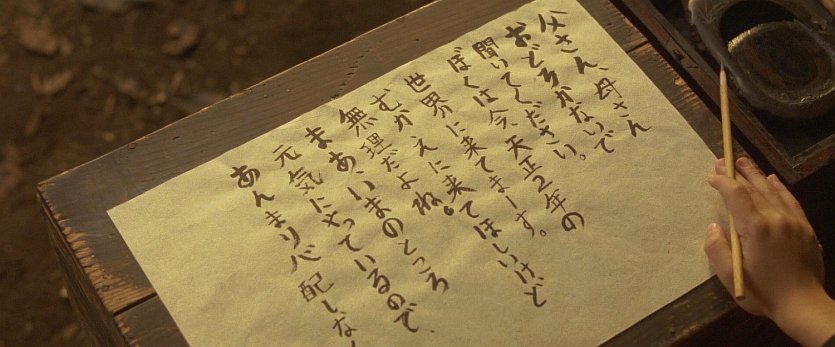 父さん、母さん
おどろかないで
聞いてください。
ぼくは今、天正2年の
世界に来てまーす。
むかえに来てほしいけど
無理だよね。
まあ、いまのところ
元気にやっているので、
あんまり心配しな